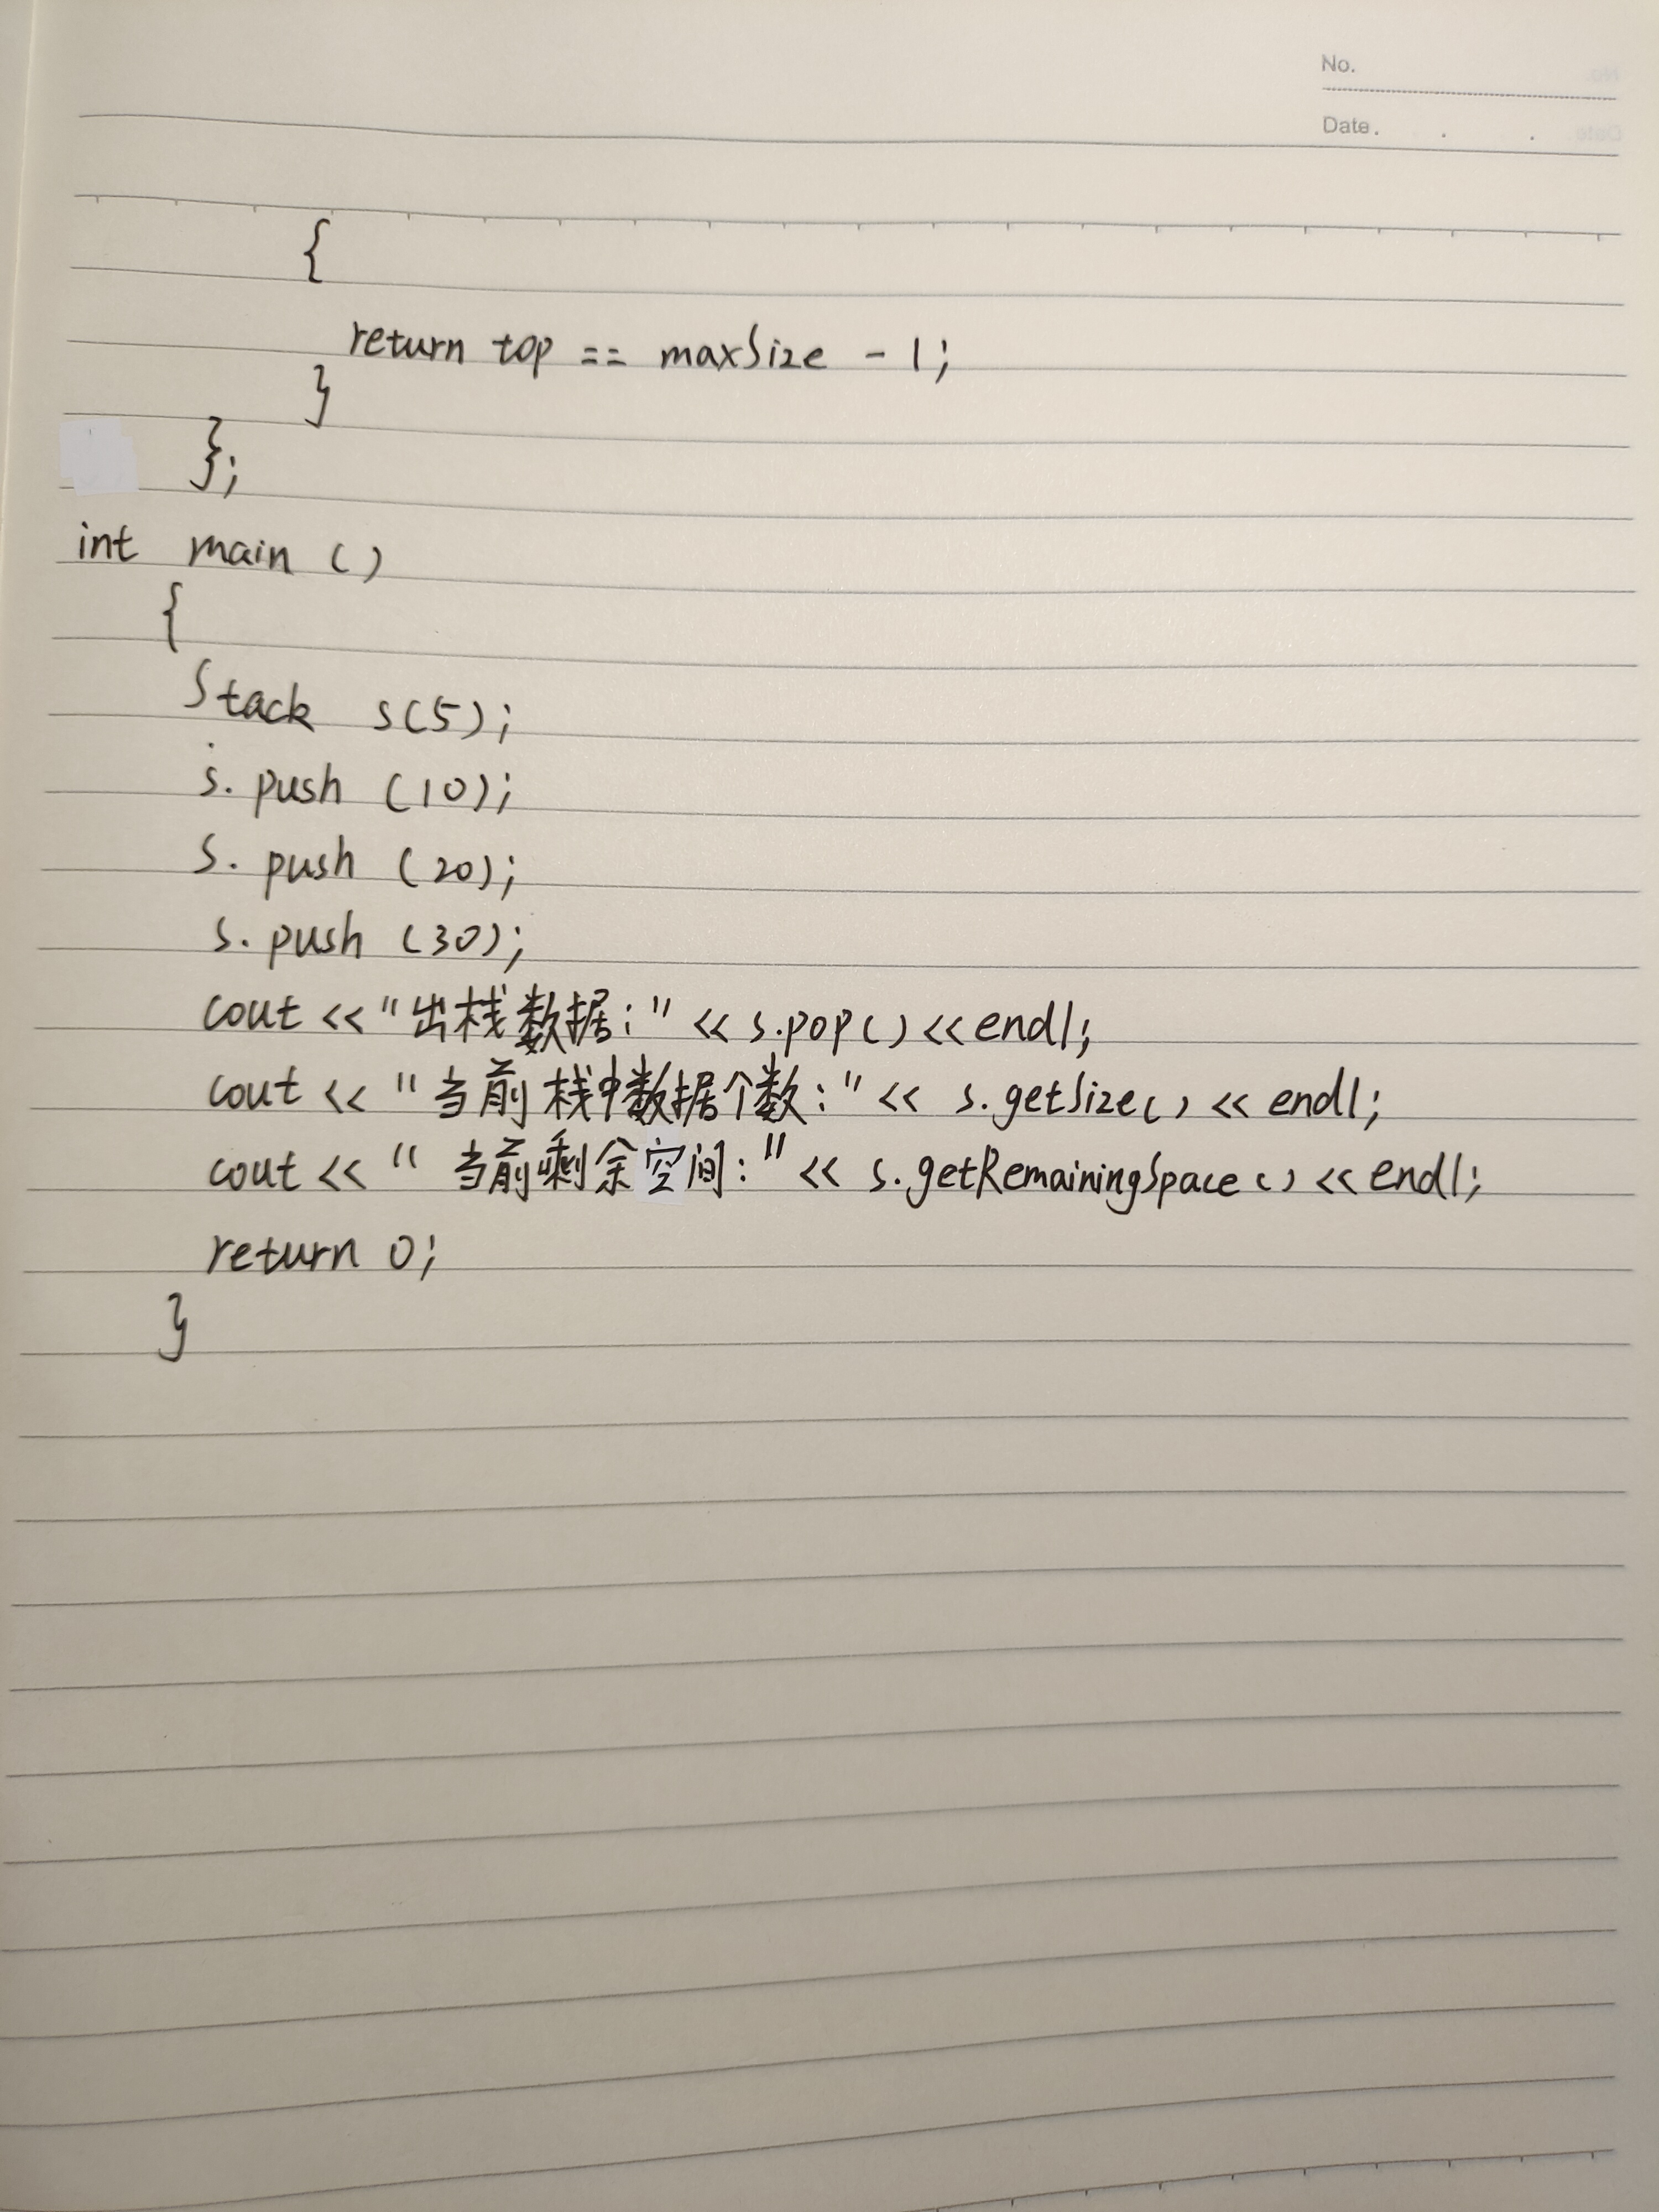 No.
Date.
{
return top == maxSize - 1;
}
};
int main ()
{
Stack s(5);
s. push (10);
s. push (20);
s. push (30);
cout << "出栈数据:" << s.pop() << endl;
cout << "当前栈中数据个数:" << s.getSize() << endl;
cout << "当前剩余空间:" << s.getRemainingSpace() << endl;
return 0;
}